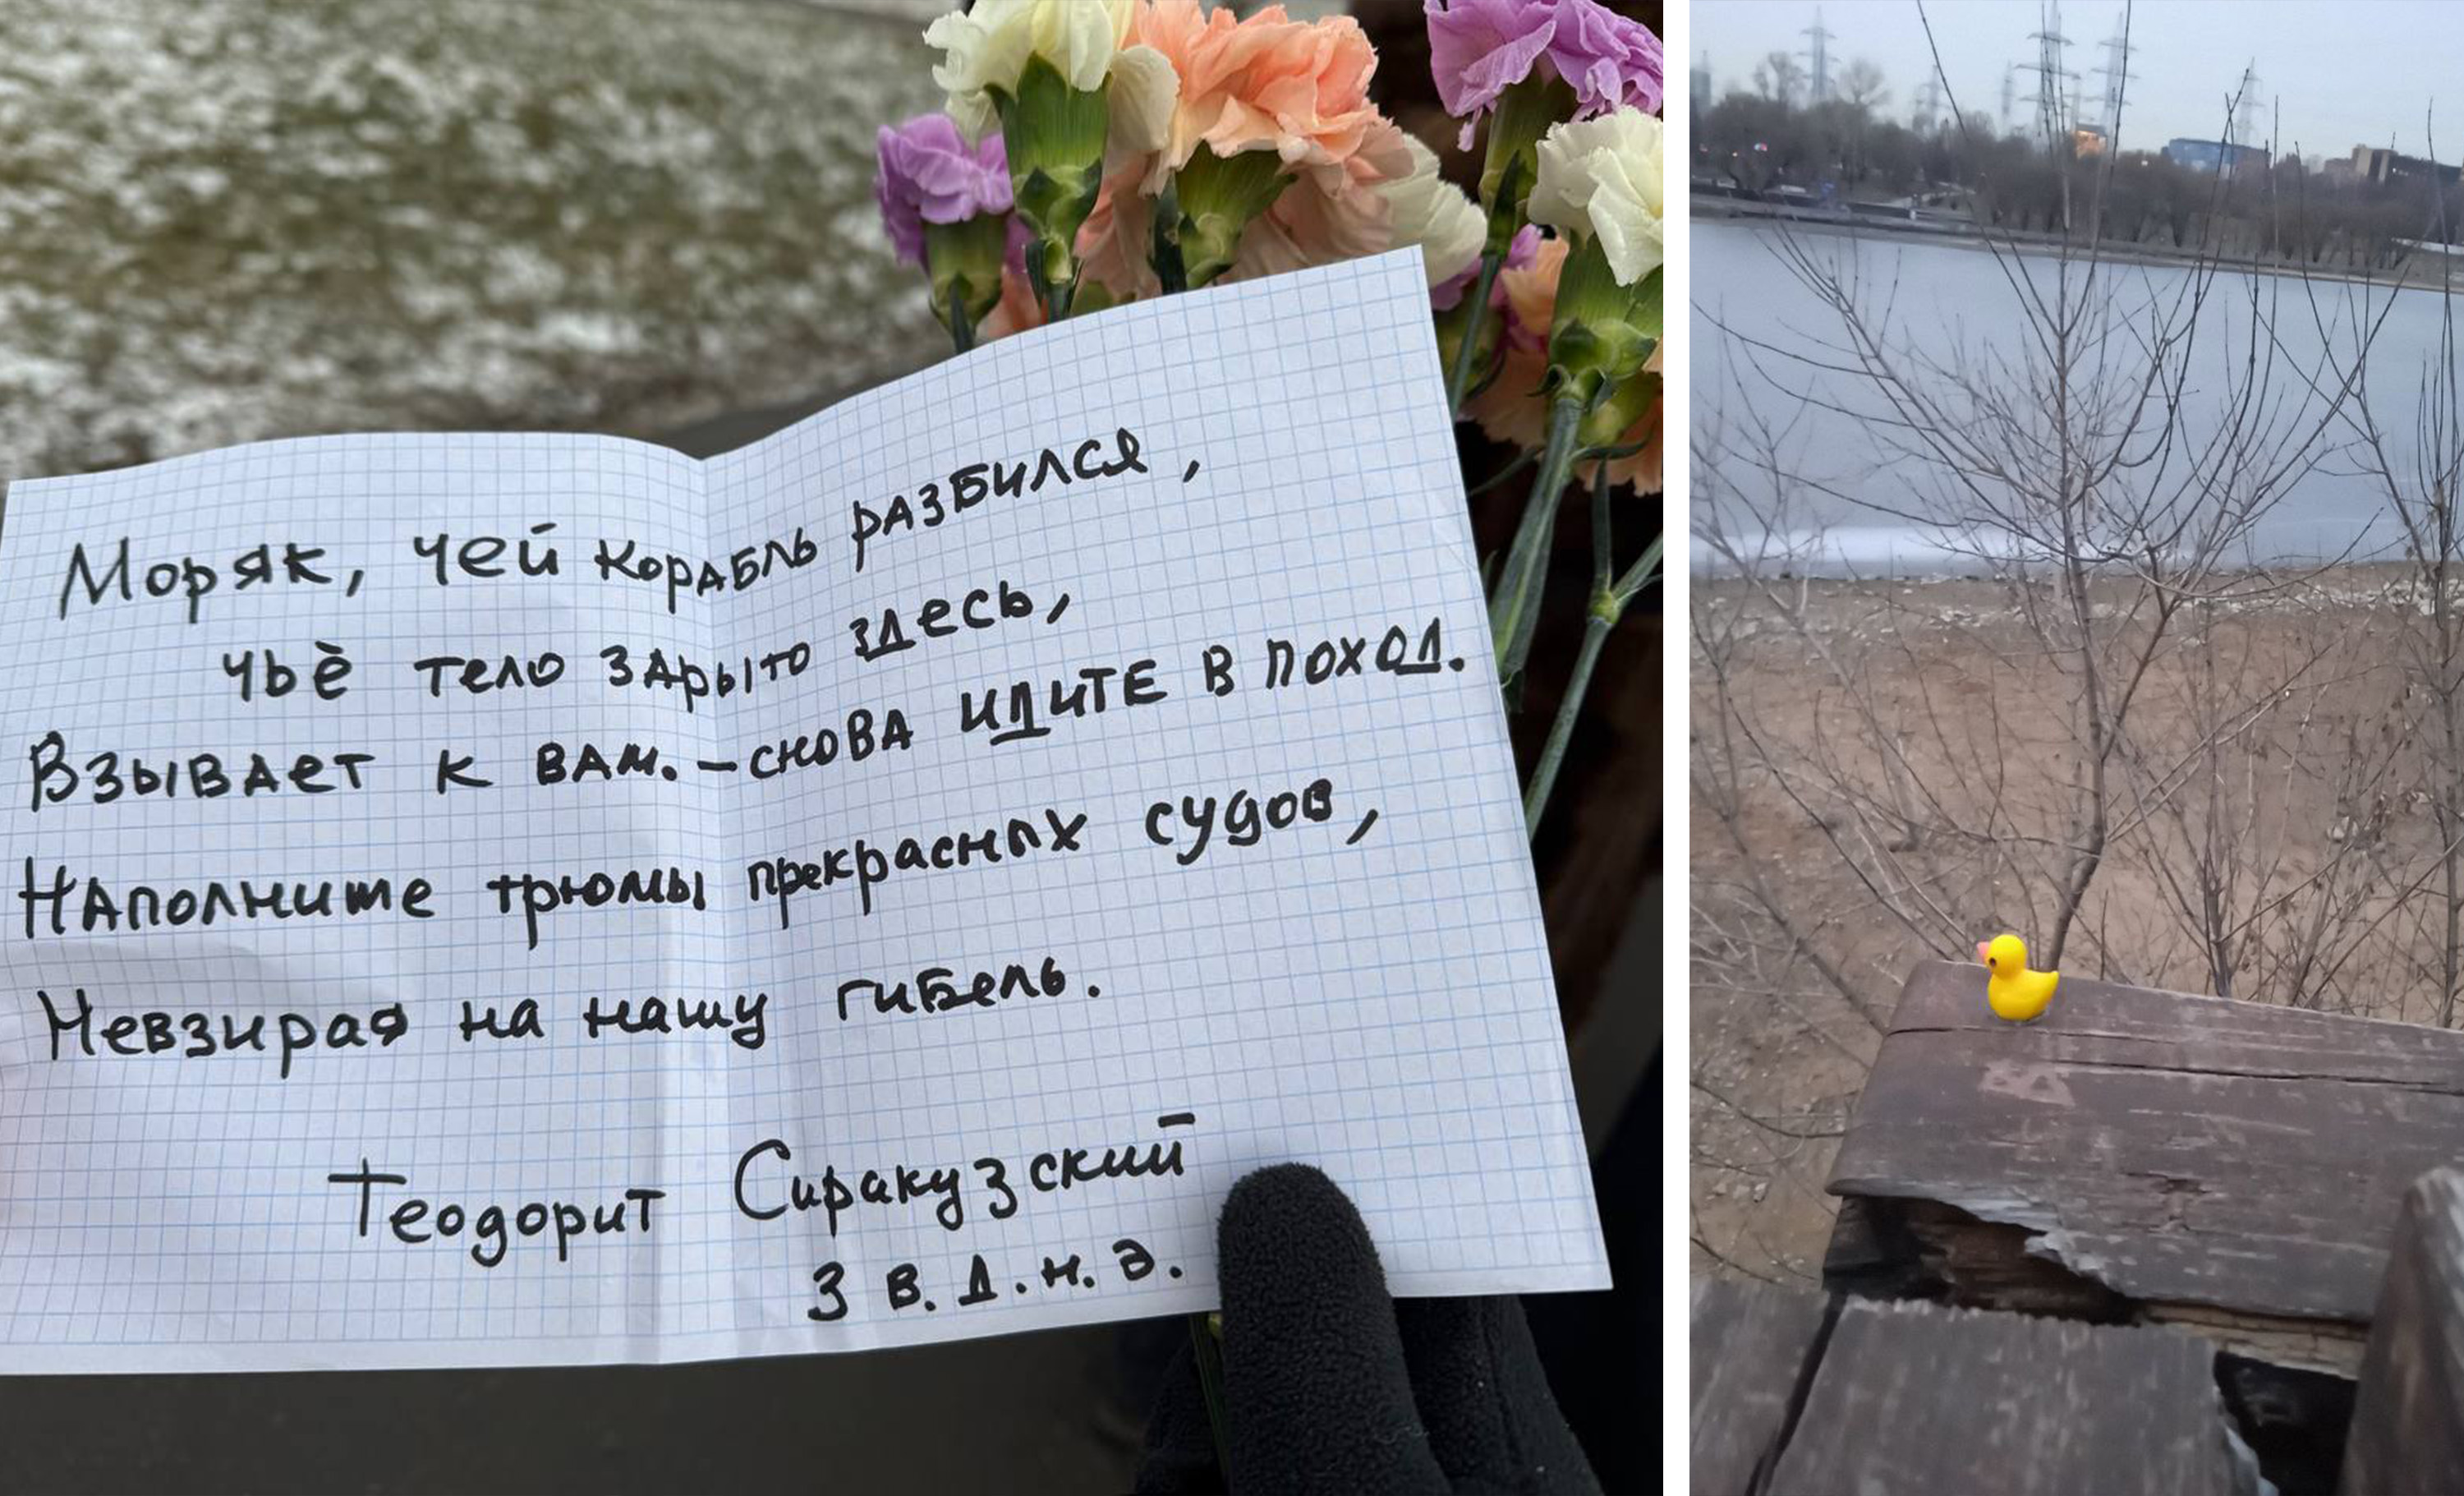 Моряк, чей корабль разбился,
чьё тело зарыто здесь,
Взывает к вам. – снова идите в поход.
Наполните трюмы прекрасных судов,
Невзирая на нашу гибель.
Теодорит Сиракузский
3 в. д. н. э.